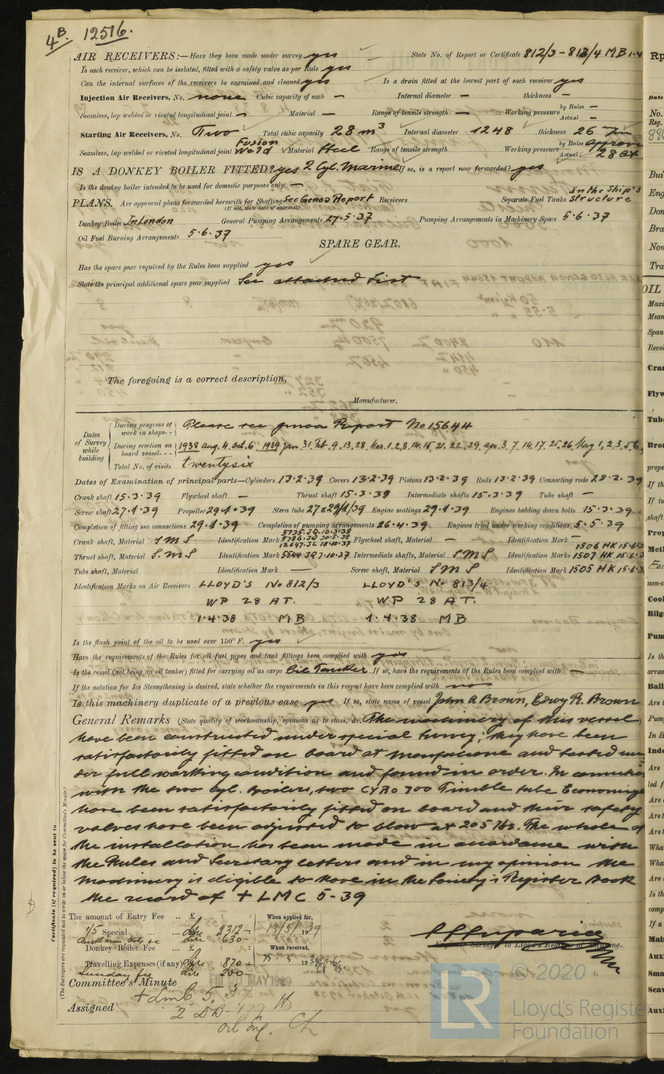 4B. 12516.
AIR RECEIVERS:—Have they been made under survey yes State No. of Report or Certificate 812/3 – 813/4 MB 1·4
Is each receiver, which can be isolated, fitted with a safety valve as per Rule yes
Can the internal surfaces of the receivers be examined and cleaned yes Is a drain fitted at the lowest part of each receiver yes
Injection Air Receivers, No. none Cubic capacity of each – Internal diameter – thickness –
Seamless, lap welded or riveted longitudinal joint – Material – Range of tensile strength – Working pressure by Rules – Actual –
Starting Air Receivers, No. Two Total cubic capacity 28 m3 Internal diameter 1248 thickness 26
Seamless, lap welded or riveted longitudinal joint Fusion Weld Material Steel Range of tensile strength Working pressure by Rules Approve Actual 28 at
IS A DONKEY BOILER FITTED? yes 2 Cyl. Marine If so, is a report now forwarded? yes
Is the donkey boiler intended to be used for domestic purposes only –
PLANS. Are approved plans forwarded herewith for Shafting See Genoa Report Receivers Separate Fuel Tanks in the ship's structure
Donkey Boilers In London General Pumping Arrangements 27·5·37 Pumping Arrangements in Machinery Space 5·6·37
Oil Fuel Burning Arrangements 5·6·37
SPARE GEAR.
Has the spare gear required by the Rules been supplied yes
State the principal additional spare gear supplied See attached List
The foregoing is a correct description,
Manufacturer.
Dates of Survey while building
During progress of work in shops - - Please see genoa Report No 15644
During erection on board vessel - - - 1938 Aug. 4, Oct. 6, 1939 Jan. 31, Feb. 9, 13, 28, Mar. 1, 2, 8, 14, 15, 21, 22, 29, Apr. 3, 7, 14, 17, 25, 26, May 1, 2, 3, 5, 6,
Total No. of visits twentysix
Dates of Examination of principal parts—Cylinders 13·2·39 Covers 13·2·39 Pistons 13·2·39 Rods 13·2·39 Connecting rods 28·2·39
Crank shaft 15·3·39 Flywheel shaft – Thrust shaft 15·3·39 Intermediate shafts 15·3·39 Tube shaft –
Screw shaft 27·1·39 Propeller 29·1·39 Stern tube 27 & 29/1/39 Engine seatings 29·1·39 Engines holding down bolts 15·3·39
Completion of fitting sea connections 29·1·39 Completion of pumping arrangements 26·4·39 Engines tried under working conditions 5·5·39
Crank shaft, Material SMS Identification Mark Flywheel shaft, Material – Identification Mark –
Thrust shaft, Material S.M.S Identification Mark Intermediate shafts, Material SMS Identification Marks 1506 HK 15·6·3 1507 HK 15·6·3
Tube shaft, Material – Identification Mark – Screw shaft, Material SMS Identification Mark 1505 HK 15·6·3
Identification Marks on Air Receivers LLOYD'S No 812/3 LLOYD'S No. 813/4
WP 28 AT. WP 28 AT.
1·4·38 MB 1·4·38 MB
Is the flash point of the oil to be used over 150° F. yes
Have the requirements of the Rules for oil fuel pipes and tank fittings been complied with yes
Is the vessel (not being an oil tanker) fitted for carrying oil as cargo Oil Tanker If so, have the requirements of the Rules been complied with –
If the notation for Ice Strengthening is desired, state whether the requirements in this respect have been complied with no
Is this machinery duplicate of a previous case yes If so, state name of vessel John A. Brown, Edwy R. Brown
General Remarks (State quality of workmanship, opinions as to class, &c. The machinery of this vessel
have been constructed under special survey, they have been
satisfactorily fitted on board at Monfalcone and tested un
der full working condition and found in order. In connection
with the two Cyl. Boilers, two CYRO 700 Trimble tube Economisers
have been satisfactorily fitted on board and their safety
valves have been adjusted to blow at 205 lbs. The whole of
the installation has been made in accordance with
the Rules and Secretary letters and in my opinion the
Machinery is eligible to have in the Society's Register Book
the record of + LMC 5·39
Certificate (if required) to be sent to
(The Surveyors are requested not to write on or below the space for Committee's Minute.)
The amount of Entry Fee .. £ : : When applied for,
4/5 Special .. 2312 :
630 :
Donkey Boiler Fee .. £ : : When received,
Travelling Expenses (if any) £ 870 :
Sunday fee 200 :
Committee's Minute
Assigned + LMC 5.39
2 DB
oil eng. CL
© 2020
LR Lloyd's Register Foundation